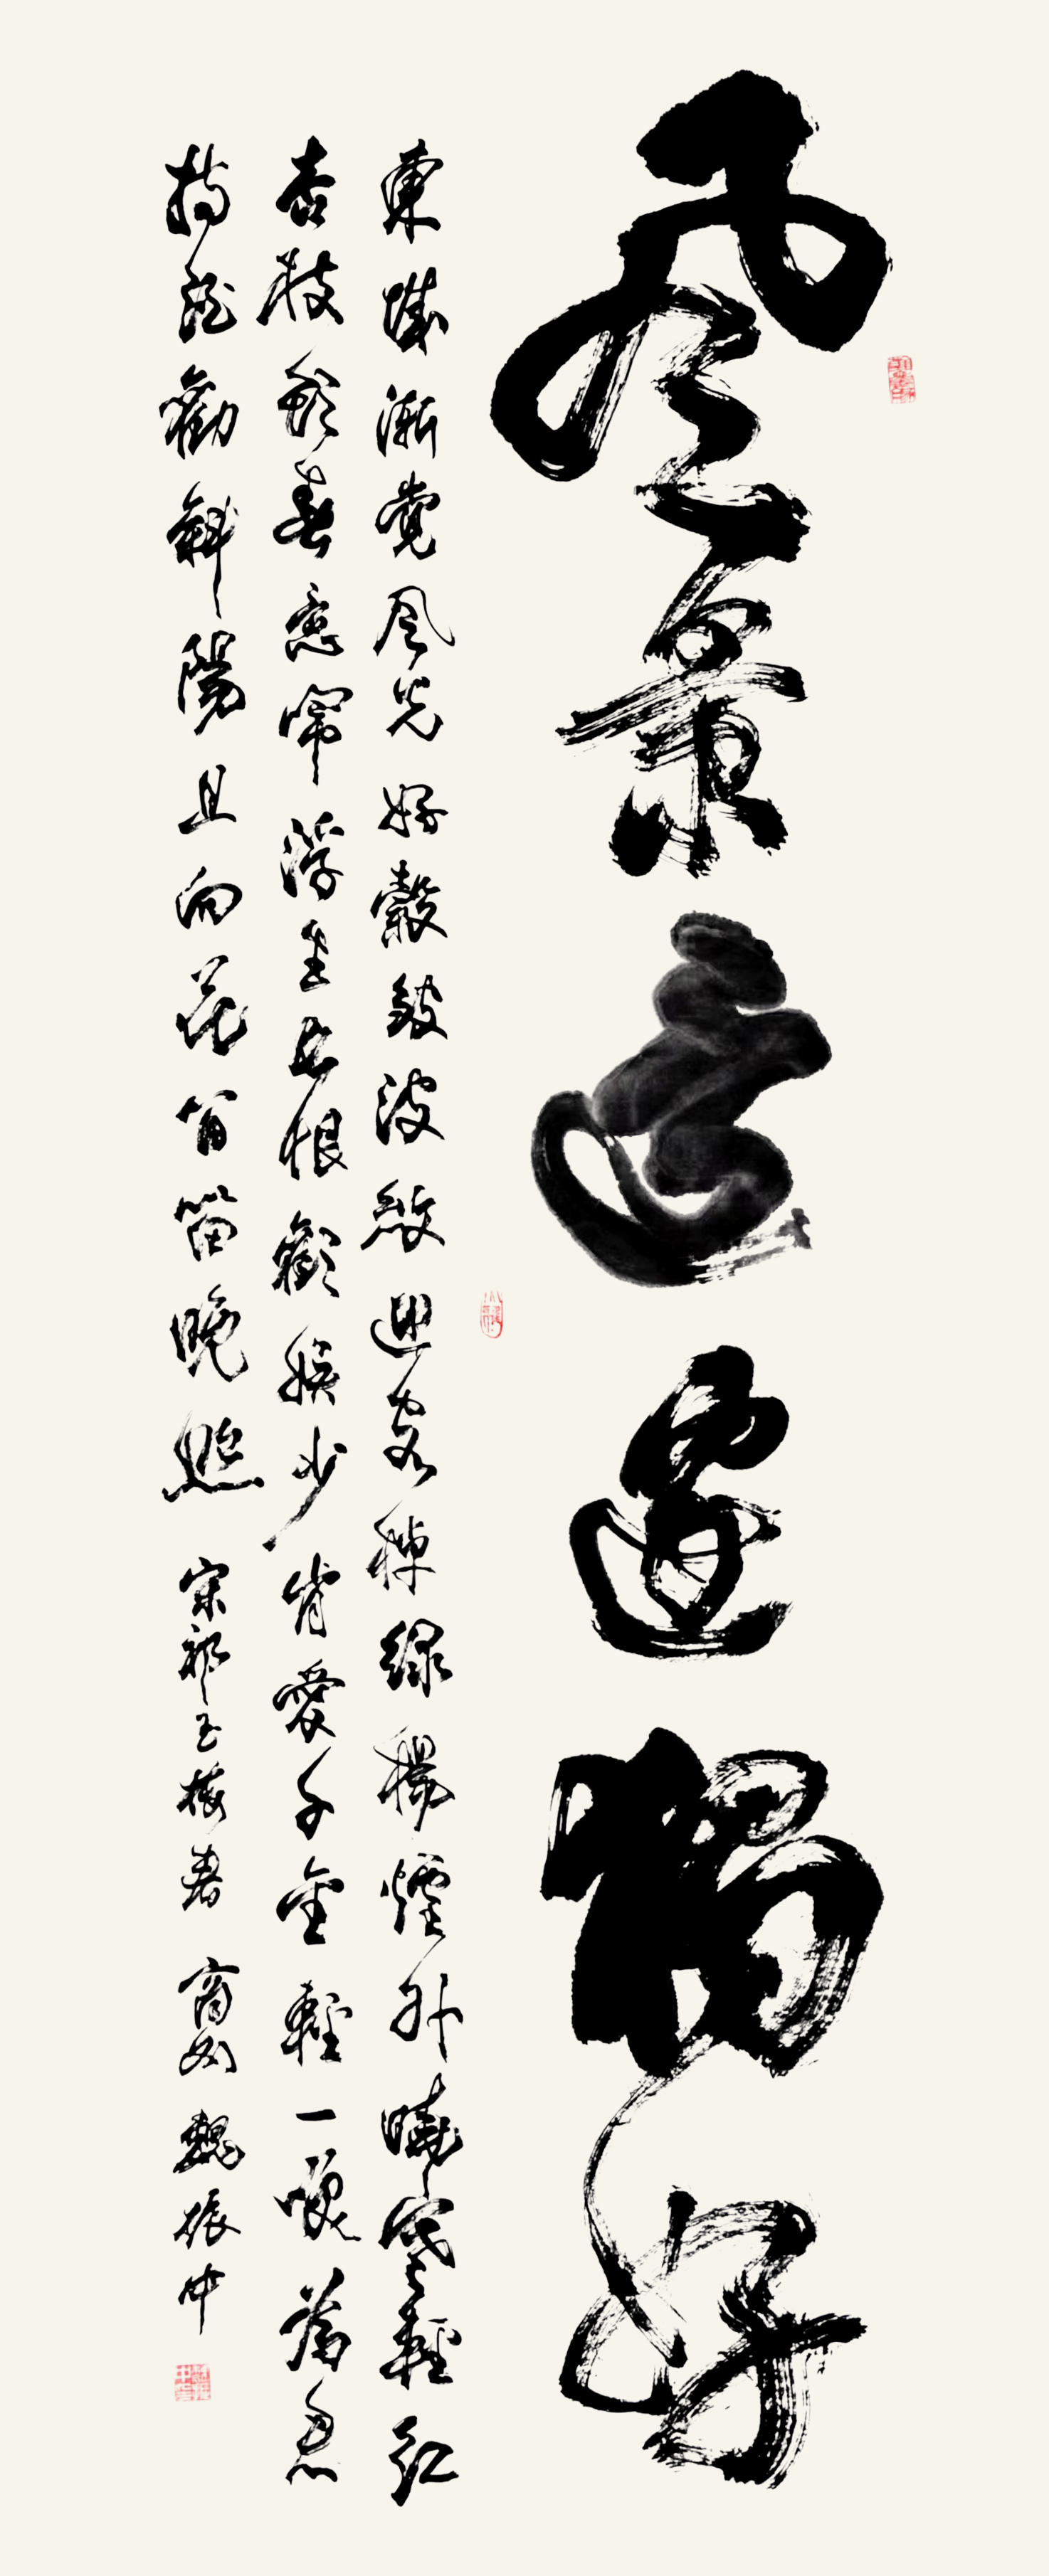 風景這邊獨好
東城漸覺風光好縠皺波紋迎客棹綠楊煙外曉寒輕紅
杏枝頭春意鬧浮生長恨歡娛少肯愛千金輕一笑為君
持酒勸斜陽且向花間留晚照 宋祁玉樓春 魏振中